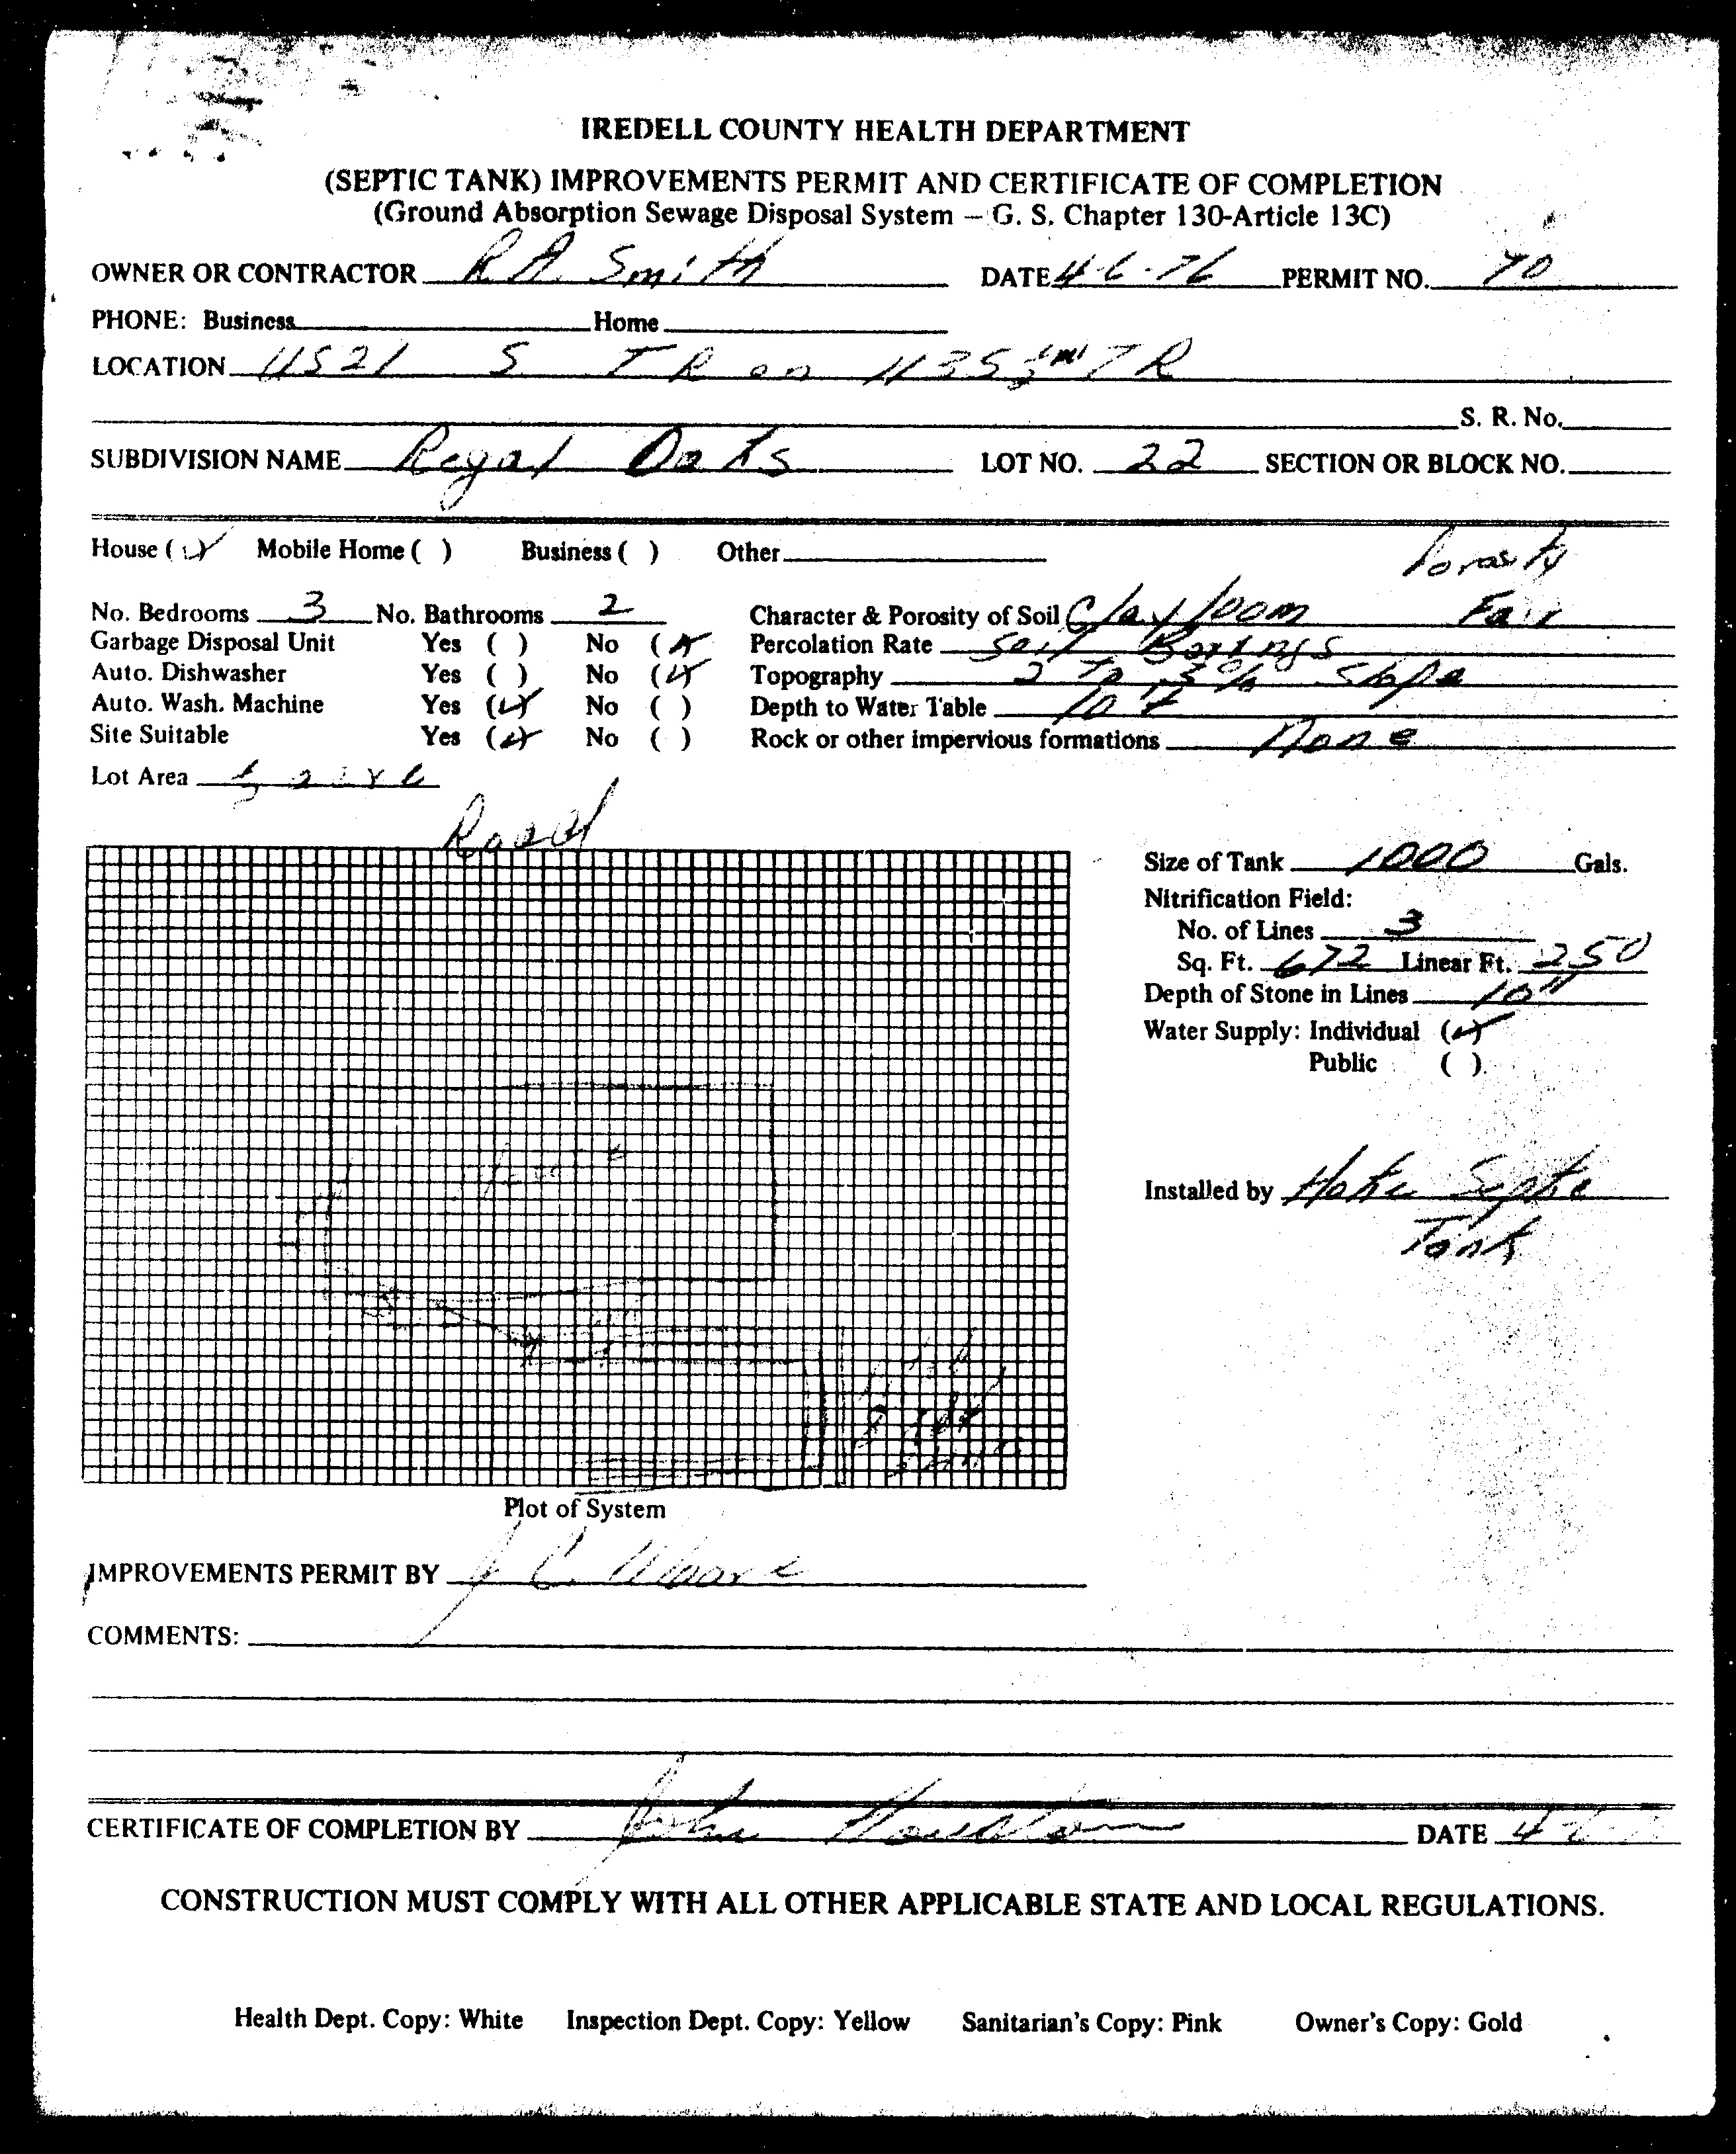 IREDELL COUNTY HEALTH DEPARTMENT
(SEPTIC TANK) IMPROVEMENTS PERMIT AND CERTIFICATE OF COMPLETION
(Ground Absorption Sewage Disposal System – G. S. Chapter 130-Article 13C)
OWNER OR CONTRACTOR R A Smith DATE 4-6-76 PERMIT NO. 70
PHONE: Business Home
LOCATION US21 S TR on 1135 TR
S. R. No.
SUBDIVISION NAME Regal Oaks LOT NO. 22 SECTION OR BLOCK NO.
House (✓) Mobile Home ( ) Business ( ) Other
Porosity
No. Bedrooms 3 No. Bathrooms 2 Character & Porosity of Soil Clay loom Fair
Garbage Disposal Unit Yes ( ) No (✓) Percolation Rate Soil Borings
Auto. Dishwasher Yes ( ) No (✓) Topography 2 To 3% Slope
Auto. Wash. Machine Yes (✓) No ( ) Depth to Water Table 10'+
Site Suitable Yes (✓) No ( ) Rock or other impervious formations None
Lot Area
Road
Size of Tank 1000 Gals.
Nitrification Field:
No. of Lines 3
Sq. Ft. 672 Linear Ft. 250
Depth of Stone in Lines 10"
Water Supply: Individual (✓)
Public ( )
Installed by Septic
Tank
Plot of System
IMPROVEMENTS PERMIT BY J C. Moore
COMMENTS:
CERTIFICATE OF COMPLETION BY John DATE 4-6
CONSTRUCTION MUST COMPLY WITH ALL OTHER APPLICABLE STATE AND LOCAL REGULATIONS.
Health Dept. Copy: White Inspection Dept. Copy: Yellow Sanitarian's Copy: Pink Owner's Copy: Gold